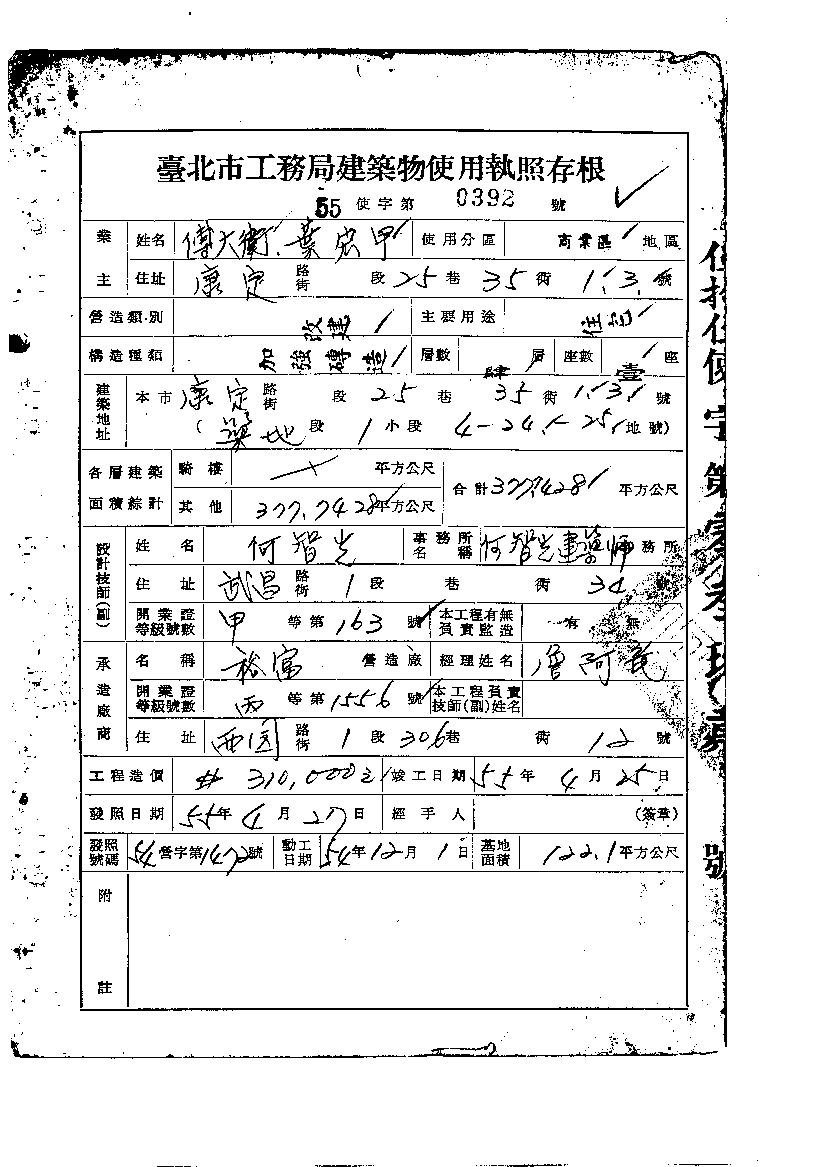 臺北市工務局建築物使用執照存根
55 使字第 0392 號
業主 姓名 傅大衛、葉宏甲 使用分區 商業區 地區
住址 康定 路街 段 25 巷 35 衖 1.3. 號
營造類別 改建 主要用途 住宅
構造種類 加強磚造 層數 肆 層 座數 壹 座
建築地址 本市 康定 路街 段 25 巷 35 衖 1.3. 號
( 築地 段 1 小段 4-24.1-25. 地號)
各層建築面積綜計 騎樓 平方公尺 合計 377.7428 平方公尺
其他 377.7428 平方公尺
設計技師(副) 姓名 何智光 事務所名稱 何智光建築師 務所
住址 武昌 路街 1 段 巷 衖 34 號
開業證等級號數 甲 等第 163 號 本工程有無負責監造 有 無
承造廠商 名稱 裕富 營造廠 經理姓名 詹阿竜
開業證等級號數 丙 等第 1556 號 本工程負責技師(副)姓名
住址 西園 路街 1 段 306 巷 衖 12 號
工程造價 # 310,000元 竣工日期 55年 4月 25日
發照日期 55年 4月 27日 經手人 (簽章)
發照號碼 54 營字第 1472 號 動工日期 54年 12月 1日 基地面積 122.1 平方公尺
附註
號